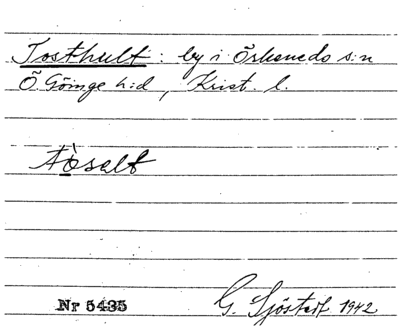 Tosthult: by i Örkeneds s:n
Ö Göinge h:d, Krist. l.
tòsalt
Nr 5435
G. Sjöstedt 1942